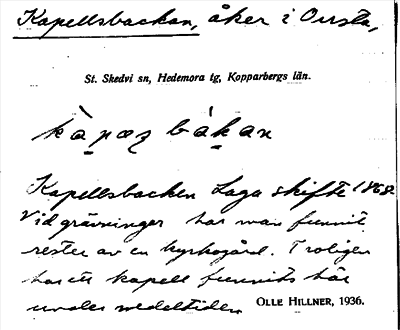 Kapellsbackan, åker i Orsta,
St. Skedvi sn, Hedemora tg, Kopparbergs län.
Kapellsbacken Laga skifte 1868
Vid grävningar har man funnit
rester av en kyrkogård. Troligen
har ett kapell funnits här
under medeltiden
OLLE HILLNER, 1936.